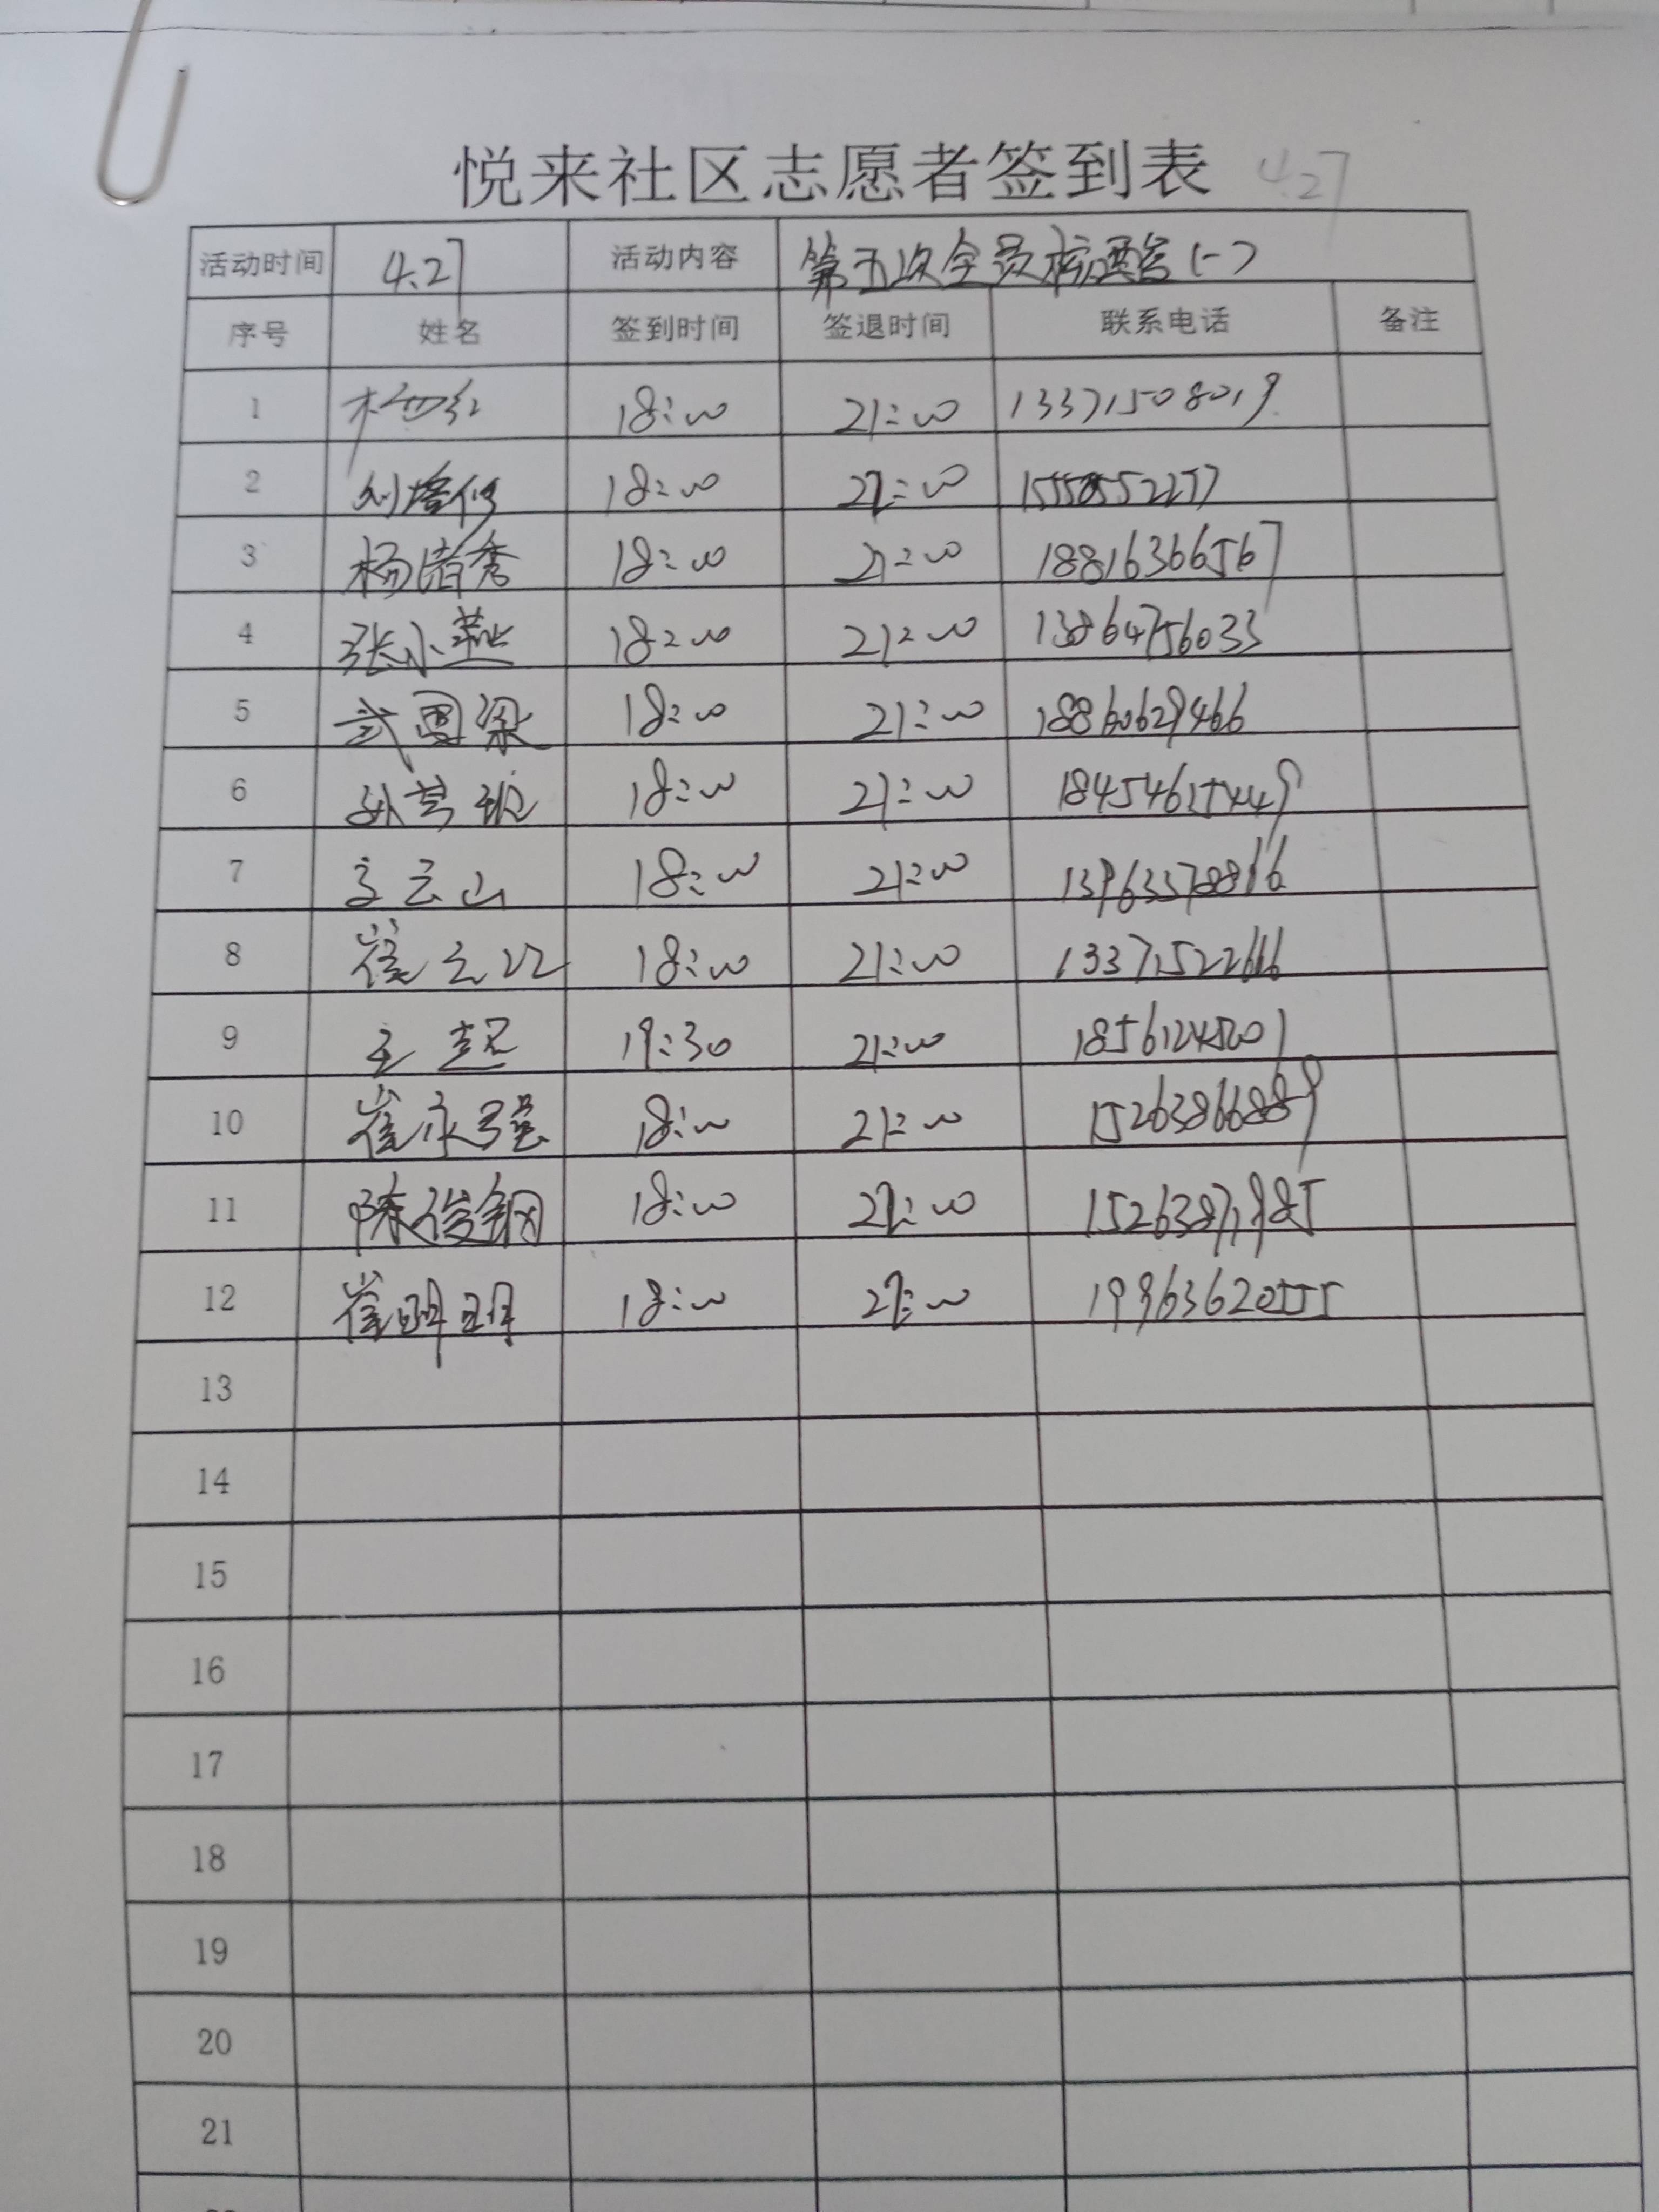 悦来社区志愿者签到表 4.27
活动时间 4.27 活动内容 第五次全员核酸(一)
序号 姓名 签到时间 签退时间 联系电话 备注
1 18:00 21:00 13371508019
2 18:00 21:00
3 杨清秀 18:00 21:00 18816366567
4 张小燕 18:00 21:00 13864756033
5 武国梁 18:00 21:00 18860629466
6 18:00 21:00 18454615449
7 18:00 21:00 13963578816
8 18:00 21:00 13371522666
9 王超 19:30 21:00
10 崔永强 18:00 21:00 15263866889
11 陈俊钢 18:00 21:00 15263871985
12 崔明明 18:00 21:00 19963620555
13
14
15
16
17
18
19
20
21